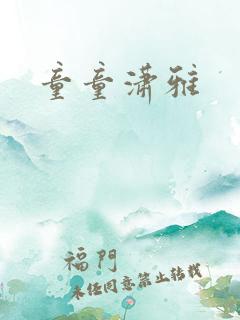 童童潇雅
福門
未经同意禁止转载